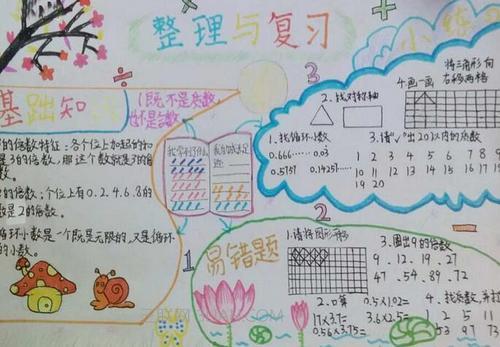 整理与复习
小练
基础知
1既不是素数,
也不是合数
的倍数特征:各个位上加起的和
是3的倍数,那这个数就是3的倍
数。
的倍数:个位上有0.2.4.6.8的
数是2的倍数。
循环小数是一个既是无限的,又是循环
的小数。
3
2、找对称轴
4画一画
将三角形向
右移两格
1、找循环小数
0.666…… 0.03
0.5757 0.14251
3、请"○"出20以内的素数
1 2 3 4 5 6 7 8 9
10 11 12 13 14 15 16 17 18
19 20
2
易错题
1、请将图形
3、圈出9的倍数
9 . 12 . 19 . 27
47 . 54 . 89 . 72
2、口算
0.5×1.02=
17×3.7=
3.6×2.5=
0.56×3.75=
1 2 5 11
53 97 73